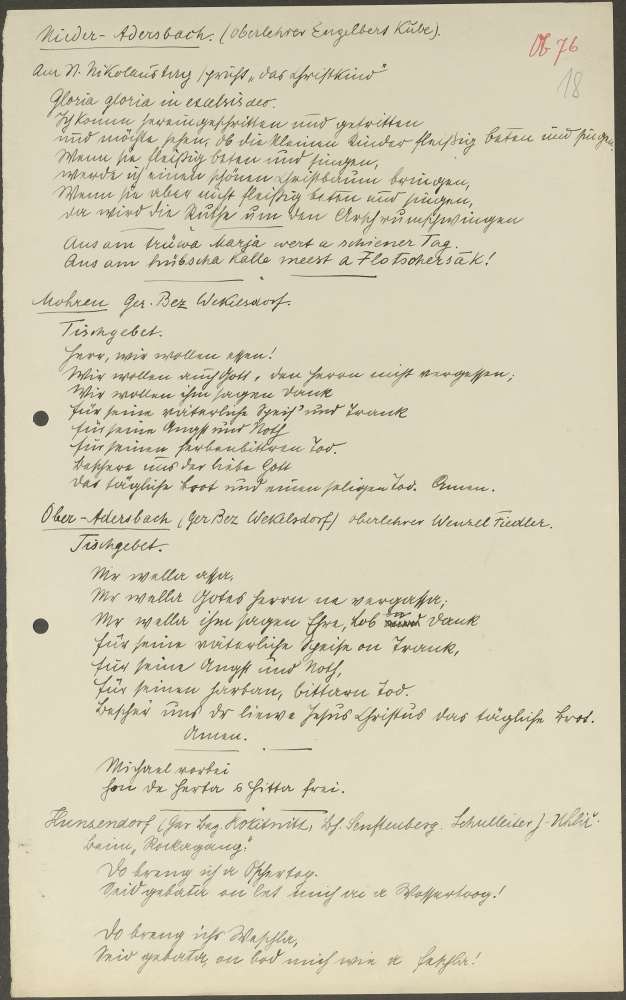 Nieder-Adersbach. (Oberlehrer Engelbert Kube).
Ob 76
18
Am St. Nikolaustag spricht „das Christkind"
Gloria gloria in excelsis deo.
Ich komm hereingeschritten und getritten
und möchte sehen, ob die kleinen Kinder fleißig beten und singen.
Wenn sie fleißig beten und singen,
werde ich einen schönen Christbaum bringen,
Wenn sie aber nicht fleißig beten und singen,
da wird die Ruthe um den Arsch rumschwingen
Aus am trüwa Marja wert a schiener Tag.
Aus am hübscha Kalla meest a Flotschersak!
Mohren Ger. Bez Wekelsdorf.
Tischgebet.
Herr, wir wollen essen!
Wir wollen auch Gott, den Herrn nicht vergessen;
Wir wollen ihm sagen Dank
für seine väterliche Speis' und Trank
für seine Angst und Noth
für seinen herbenbittren Tod.
Beschere uns der liebe Gott
das tägliche Brot und einen seligen Tod. Amen.
Ober-Adersbach (Ger Bez Wekelsdorf) Oberlehrer Wenzel Fiedler.
Tischgebet.
Mr wella assa,
Mr wella Gotes Herrn ne vergassa;
Mr wella ihm sagen Ehre, Lob on Dank
für seine väterliche Speise on Trank,
für seine Angst und Noth,
für seinen harban, bittarn Tod.
Bescher uns dr liewe Jesus Christus das tägliche Brot.
Amen.
Michael vorbei
hon de Herta s Hitta frei.
Kunzendorf (Ger Bez. Rokitnitz, Bh. Senftenberg. Schulleiter J. Uhlíř.
Beim „Rockagang:"
Do breng ich a
Seid gebata on let mich ai a
Do breng ichs
Seid gebata, on lod mich wie a